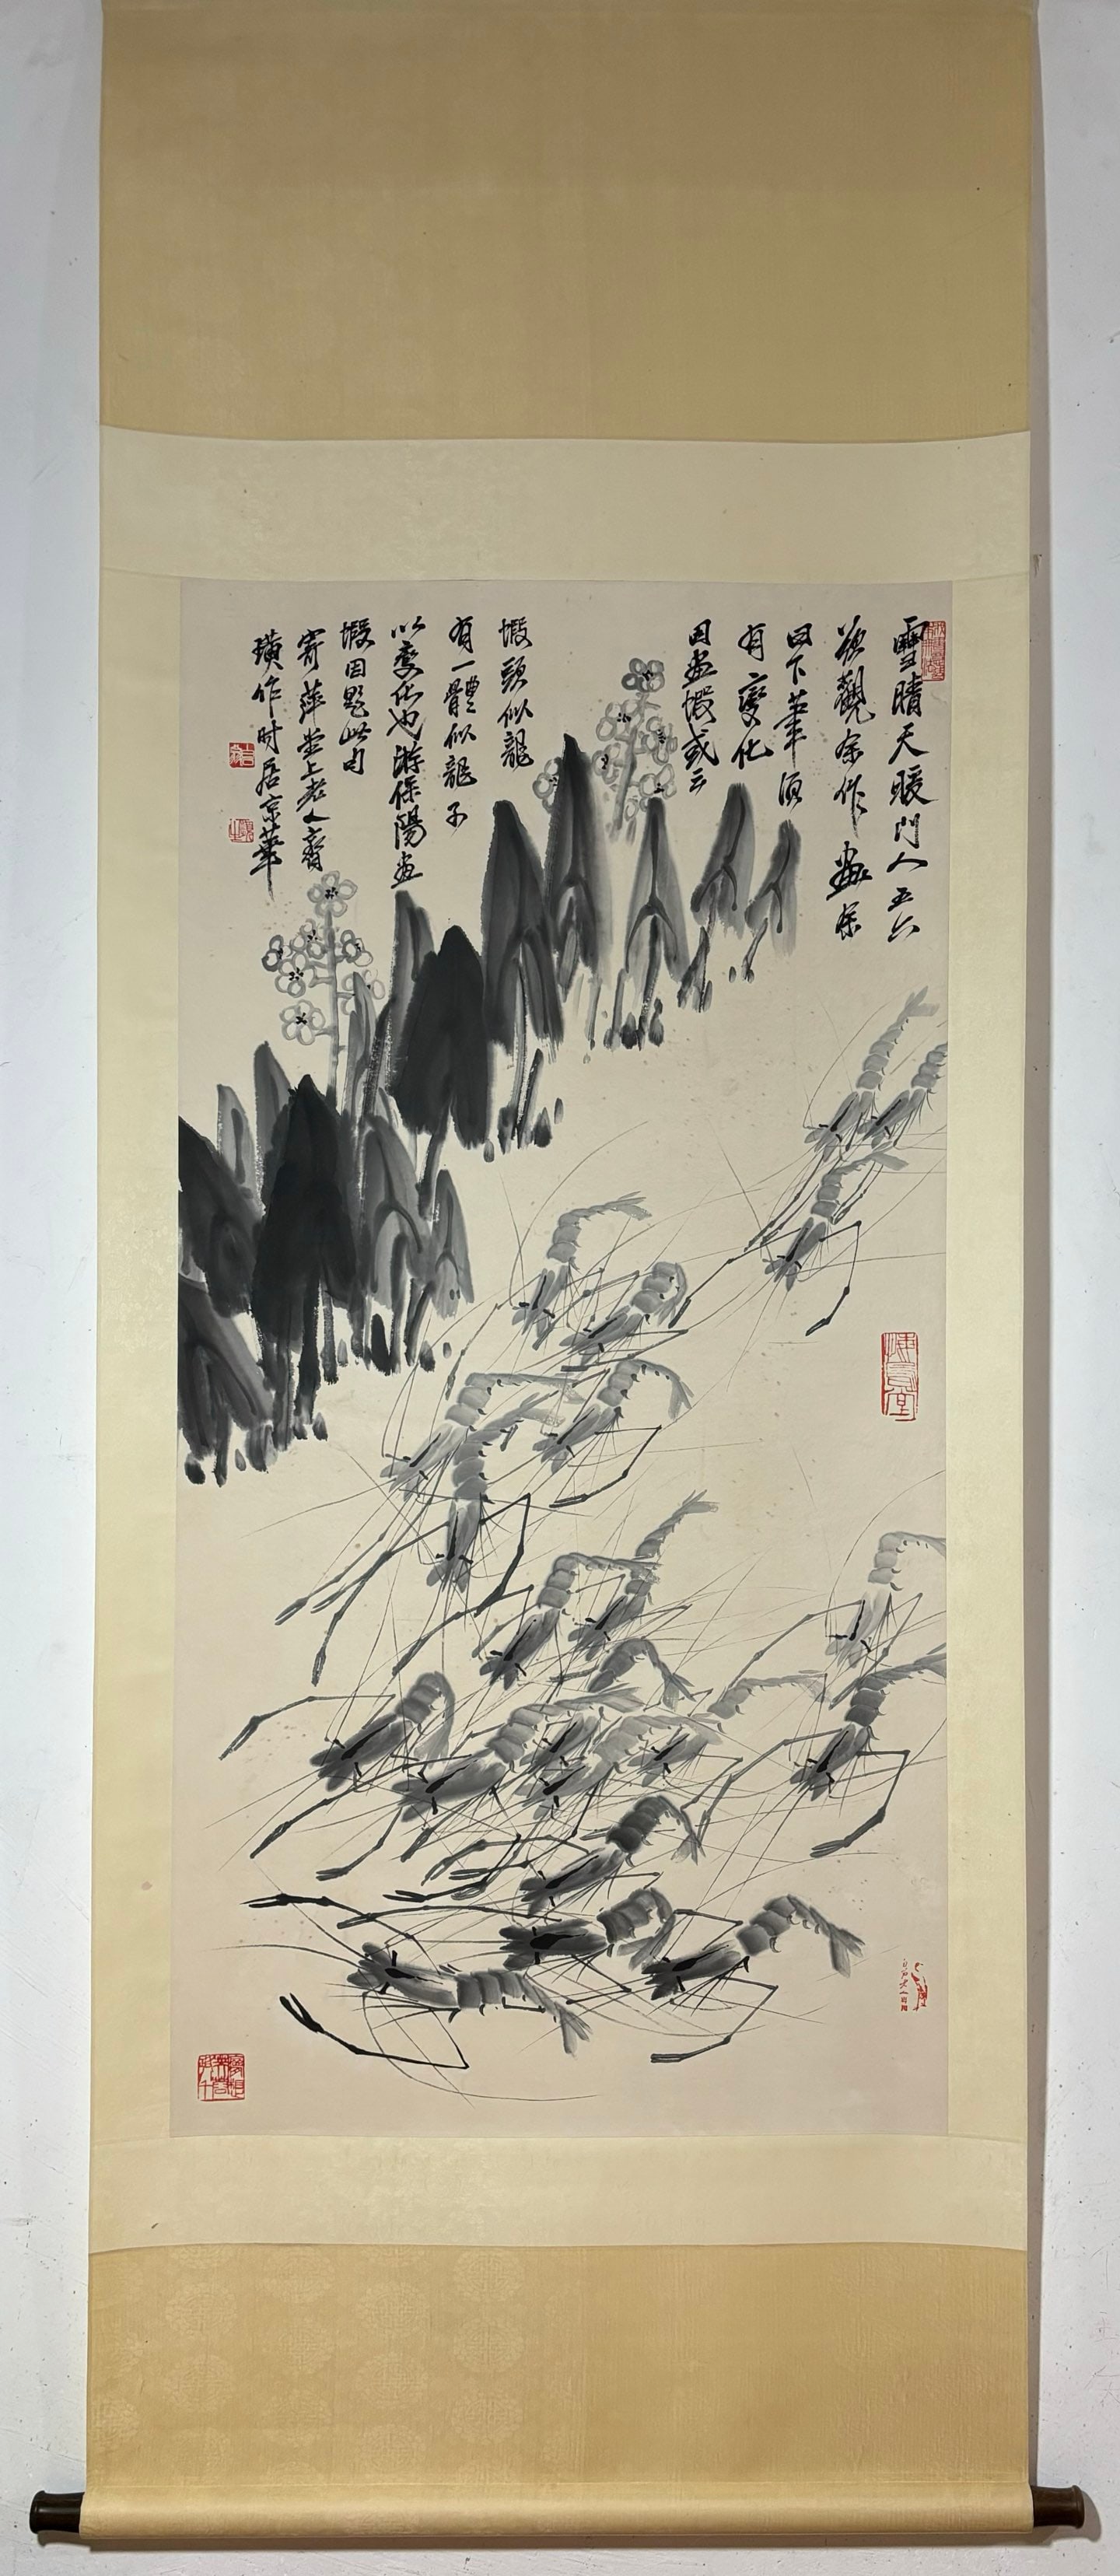 雪晴天暖門人五六
欲觀余作畫余
曰下筆須
有變化
因畫蝦或云
蝦頭似龍
有一體似龍子
以變化也游保陽畫
蝦因題此句
寄萍堂上老人齊
璜作时居京華